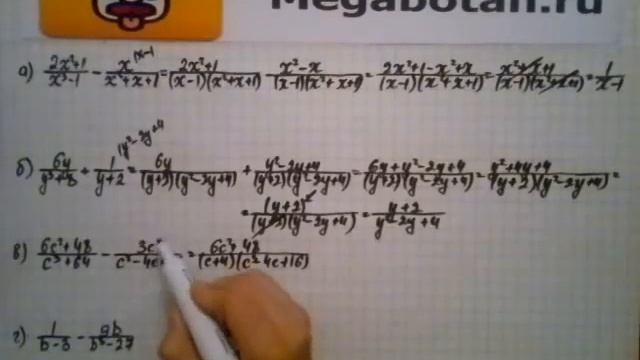 Megabotan.ru
а) (2x²+1)/(x³-1) - x/(x²+x+1) |x-1 = (2x²+1)/((x-1)(x²+x+1)) - (x²-x)/((x-1)(x²+x+1)) = (2x²+1-x²+x)/((x-1)(x²+x+1)) = (x²+x+1)/((x-1)(x²+x+1)) = 1/(x-1)
б) 6y/(y³+8) + 1/(y+2) |y²-2y+4 = 6y/((y+2)(y²-2y+4)) + (y²-2y+4)/((y+2)(y²-2y+4)) = (6y+y²-2y+4)/((y+2)(y²-2y+4)) = (y²+4y+4)/((y+2)(y²-2y+4)) =
= (y+2)²/((y+2)(y²-2y+4)) = (y+2)/(y²-2y+4)
в) (6c²+48)/(c³+64) - 3c/(c²-4c = (6c²+48)/((c+4)(c²-4c+16))
г) 1/(b-3) - 9b/(b³-27)